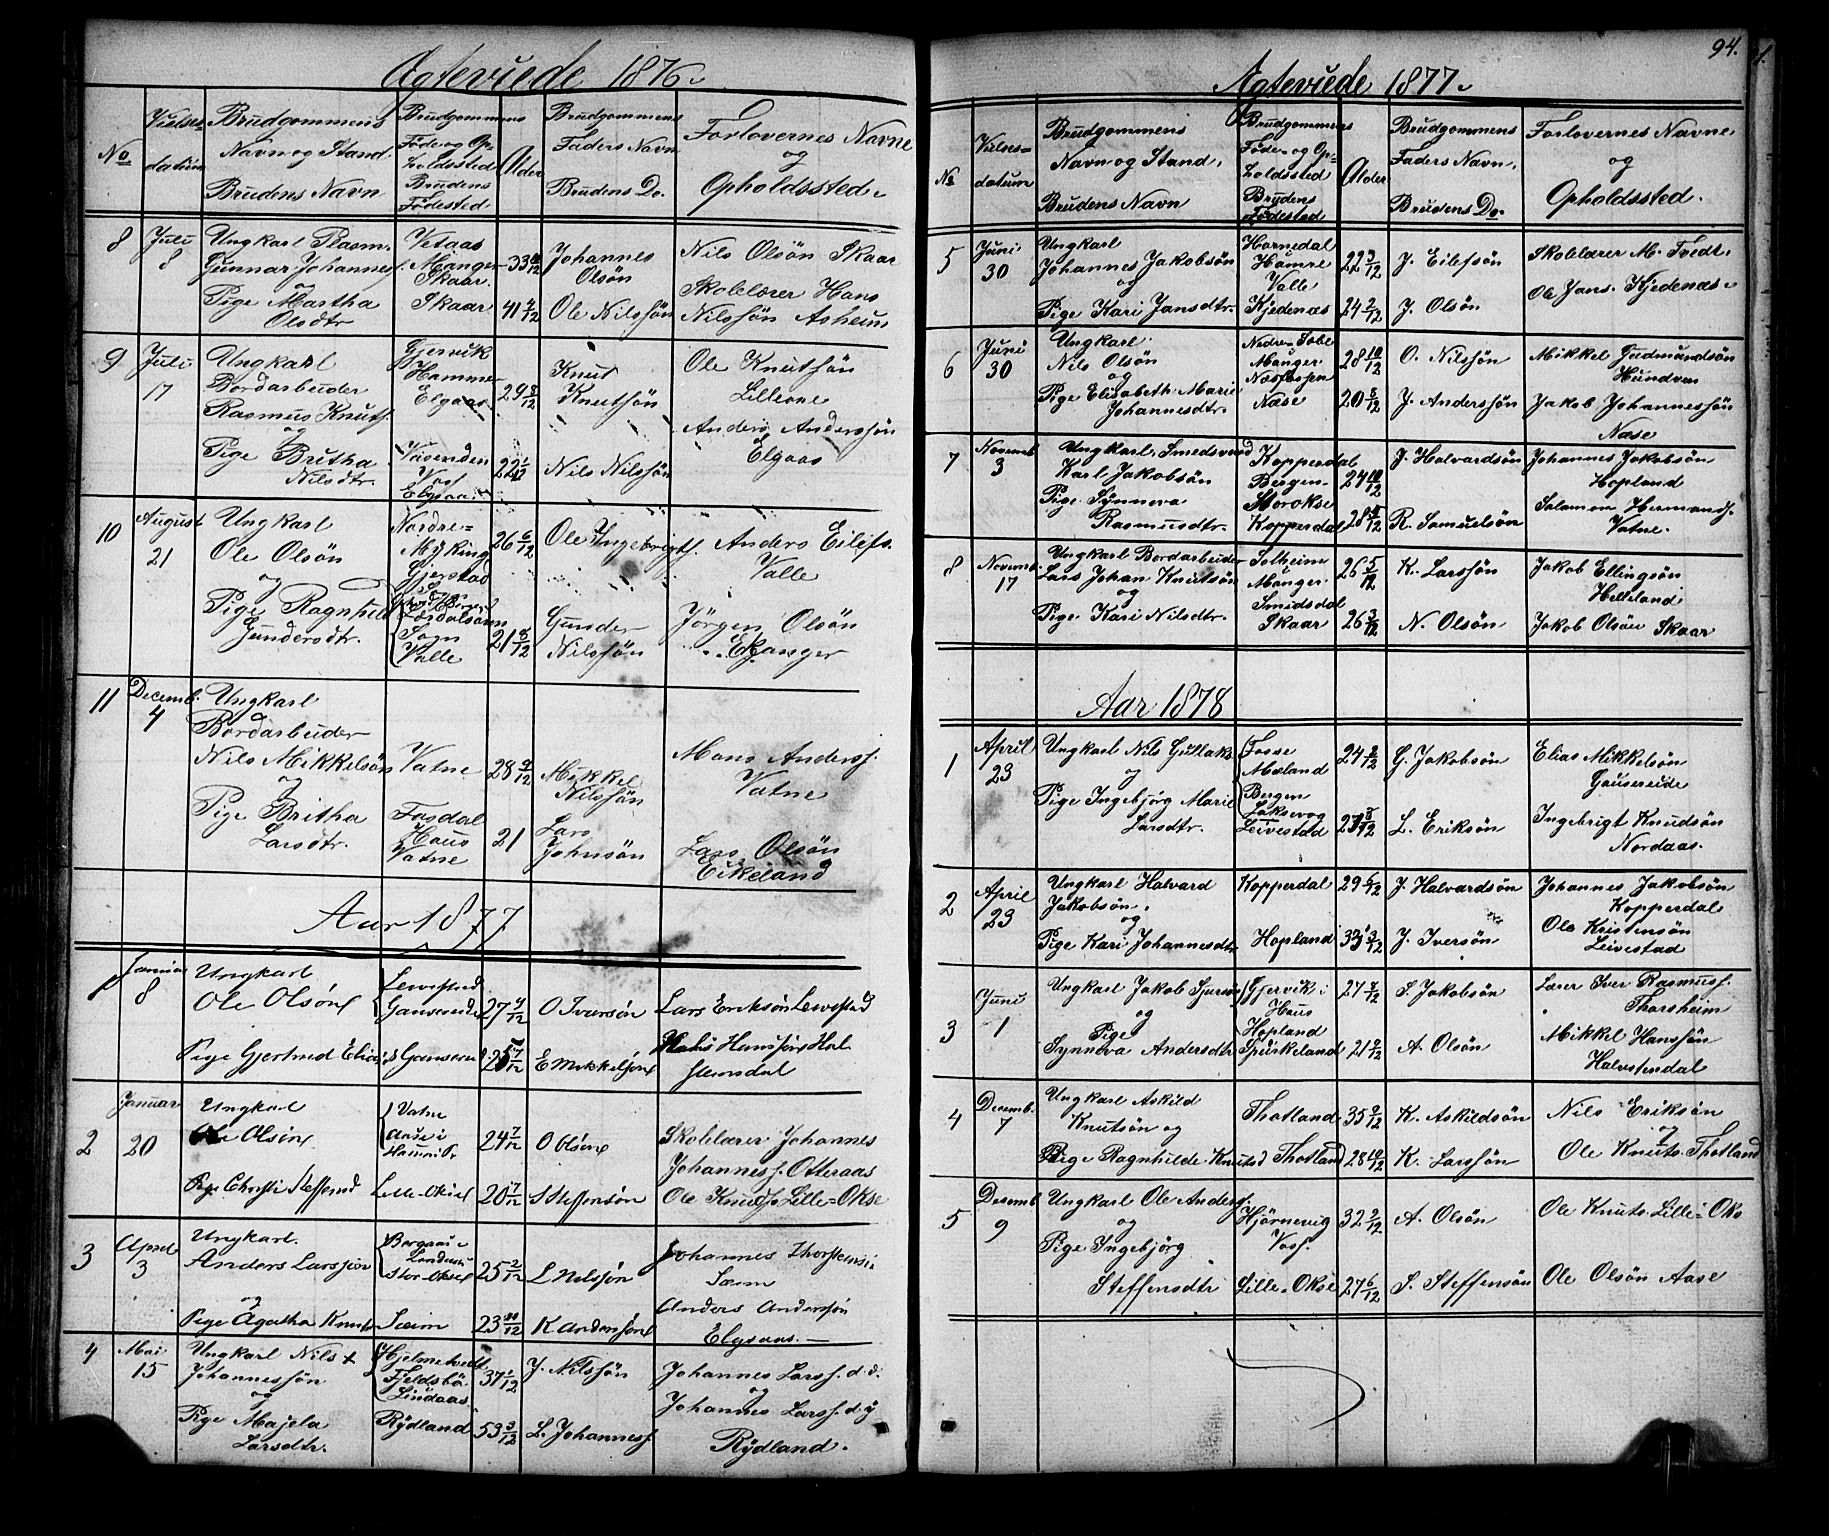 Ægteviede 1876.
No
Vielses-
datum
Brudgommens
Navn og Stand.
Brudens Navn
Brudgommens
Føde og Op-
holdssted
Brudens
Fødested
Alder
Brudgommens
Faders Navn
Brudens Do.
Forlovernes Navne
og
Opholdssted.
8
Juli
8
Ungkarl Plasm.
Gunnar Johannesf.
og
Pige Martha
Olsdtr
Vetaas
Manger
Skaar.
Skaar
33 10/12
41 4/12
Johannes
Olsön
Ole Nilssön
Nils Olsön Skaar
Skolelærer Hans
Nilssön Asheim
9
Juli
17
Ungkarl
Bordarbeider
Rasmus Knutf.
og
Pige Britha
Nilsdtr.
Gjervik
Hammer
Elgaas
Vasenden
Vos
Elgaas
29 8/12
22 1/12
Knut
Knutsön
Nils Nilssön
Ole Knutsön
Lilleone
Anders Anderssön
Elgaas
10
August
21
Ungkarl
Ole Olsön
og
Pige Ragnhild
Gundersdtr.
Nordre-
Myking
Gjerstad
Lærdalsøren
Sogn
Valle
26 6/12
21 8/12
Ole Ingebrigtf.
Gunder
Nilssön
Anders Eilefs.
Valle
Jörgen Olsön
11
Decemb.
4
Ungkarl
Bordarbeider
Nils Mikkelsön
og
Pige Britha
Larsdtr.
Vatne
Fosdal
Haus
Vatne
28 9/12
21
Mikkel
Nilssön
Lars
Johnsön
Mons Andersf.
Vatne
Lars Olsön
Eikeland
Aar 1877
1
Januar
8
Ungkarl
Ole Olsön
Pige Gjertrud Elias
Levestad
27 4/12
25 7/12
O Ivarsön
E Mikkelsön
Lars Eriksön Levestad
2
Januar
20
Ungkarl
Ole Olsön
Pige Christi Steffensd
Vatne
Aase i
Lille-Okse
24 7/12
20 7/12
O Olsön
S Steffensön
Skolelærer Johannes
Johannesf. Otteraas
Ole Knudsf. Lille-Okse
3
April
3
Ungkarl.
Anders Larssön
og
Pige Agatha Knuts
Stor-Okse
Sæim
25 2/12
23 10/12
L Nilssön
K Anderssön
Johannes Thorstensön
Sæim
Anders Anderssön
Elgaas.
4
Mai
15
Ungkarl Nils +
Johannessön
og
Pige Majela
Larsdtr.
Hjelmetvedt
Fjeldsbö
Lindaas
Rÿdland
37 2/12
53 3/12
J. Nilssön
L. Johannesf.
Johannes Larsf. d. æ.
og
Johannes Larsf. d. y
Rÿdland.
94.
Ægteviede 1877.
No
Vielses-
datum
Brudgommens
Navn og Stand.
Brudens Navn
Brudgommens
Føde- og Op-
holdssted
Brudens
Fødested
Alder
Brudgommens
Faders Navn.
Brudens Do.
Forlovernes Navne.
og
Opholdssted.
5
Juni
30
Ungkarl
Johannes Jakobsön
og
Pige Kari Jansdtr.
Hamre
Valle
Kjedenæs
22 3/12
24 2/12
J. Eilefsön
J. Olsön
Skolelærer M. Tvedt.
Ole Jans. Kjedenæs.
6
Juni
30
Ungkarl.
Nils Olsön
og
Pige Elisabeth Marie
Johannesdtr.
Manger
Næse
28 10/12
20 8/12
O. Nilssön
J. Anderssön
Mikkel Gudmundsön
Hundven
Jakob Johannessön
Næse
7
Novemb.
3
Ungkarl Smedsvend
Karl Jakobsön
Pige Synneva
Rasmusdtr.
Kopperdal
Bergen
Storokse
Kopperdal
24 10/12
28 8/12
J. Halvardsön
R. Samuelsön
Johannes Jakobsön
Hopland
Salamon Hermansf.
Vatne.
8
Novemb.
17
Ungkarl Bordarbeider
Lars Johan Knutsön
og
Pige Kari Nilsdtr.
Solheim
Manger
Smidsdal
Skaar
26 5/12
26 3/12
K. Larssön
N. Olsön
Jakob Ellingsön
Helleland
Jakob Olsön Skaar
Aar 1878
1
April
23
Ungkarl Nils Gutlaks
og
Pige Ingebjörg Marie
Larsdtr.
Fosse
Mæland
Bergen
Laksevog
Leivestad
24 2/12
G. Jakobsön
L. Eriksön
Elias Mikkelsön
Gausereide
Ingebrigt Knudsön
Nordaas.
2
April
23
Ungkarl Halvard
Jakobsön.
og
Pige Kari Johannesdtr.
Kopperdal
Hopland
29 6/12
33 3/12
J. Halvardsön
J. Iversön
Johannes Jakobsön
Kopperdal
Ole Kristensön
Leivestad
3
Juni
1
Ungkarl Jakob Sjurs
og
Pige
Synneva Andersdtr.
Gjervik i
Haus
Hopland
Spurkeland
27 7/12
21 2/12
S. Jakobsön
A. Olsön
Lærer Iver Rasmusf.
Thorsheim
Mikkel Hanssön
Halvstendal
4
Decemb.
7
Ungkarl Askild
Knutsön og
Pige Ragnhilde Knutsd
Thotland
Thotland
35 9/12
28 10/12
K. Askildsön
K. Larssön
Nils Eriksön
og
Ole Knuts. Thotland
5
Decemb.
9
Ungkarl Ole Andersf.
og
Pige Ingebjörg
Steffensdtr
Hjörnevig
Vosf.
Lille-Okse
32 9/12
27 6/12
A. Olsön
S. Steffensön
Ole Knuts. Lille-Oks
Ole Olsön Aase